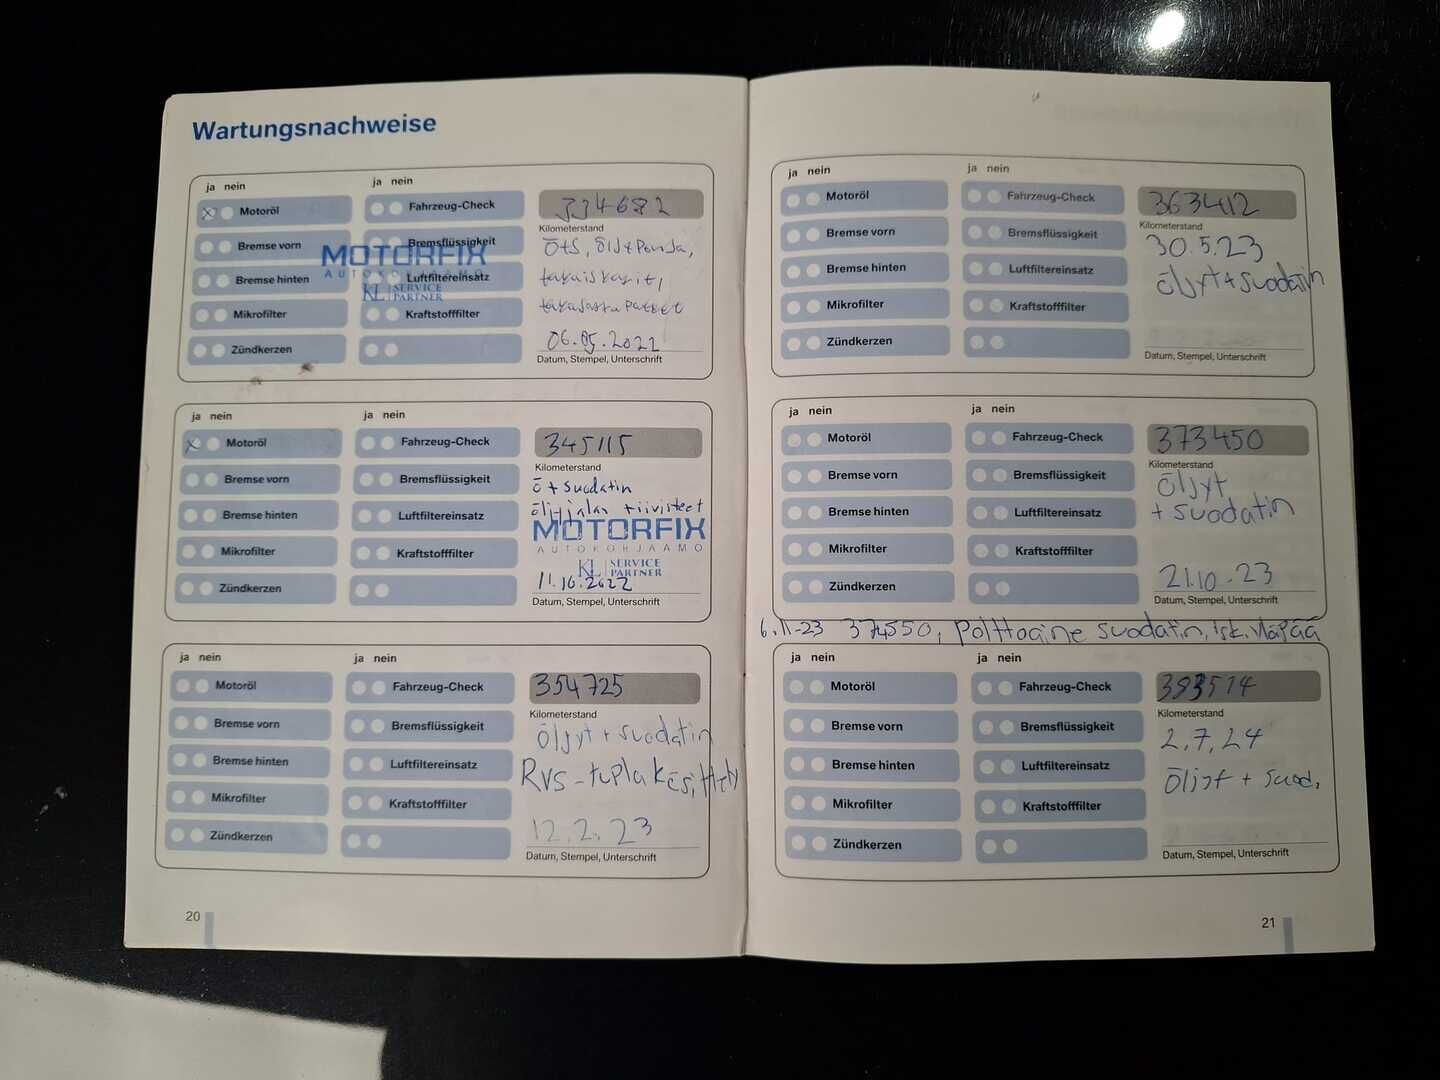 Wartungsnachweise
ja nein
ja nein
Motoröl
Fahrzeug-Check
334682
Kilometerstand
Bremse vorn
Bremsflüssigkeit
MOTORFIX
AUTOKORJAAMO
KL SERVICE PARTNER
Bremse hinten
Luftfiltereinsatz
Mikrofilter
Kraftstofffilter
Zündkerzen
Ö+S, öljypohja,
takaiskarit,
06.05.2022
Datum, Stempel, Unterschrift
ja nein
ja nein
Motoröl
Fahrzeug-Check
345115
Kilometerstand
Bremse vorn
Bremsflüssigkeit
Bremse hinten
Luftfiltereinsatz
Mikrofilter
Kraftstofffilter
Zündkerzen
ö + suodatin
öljyjalan tiivisteet
MOTORFIX
AUTOKORJAAMO
KL SERVICE PARTNER
11.10.2022
Datum, Stempel, Unterschrift
ja nein
ja nein
Motoröl
Fahrzeug-Check
354725
Kilometerstand
Bremse vorn
Bremsflüssigkeit
Bremse hinten
Luftfiltereinsatz
Mikrofilter
Kraftstofffilter
Zündkerzen
öljyt + suodatin
RVS-tuplakäsittely
12.2.23
Datum, Stempel, Unterschrift
20
ja nein
ja nein
Motoröl
Fahrzeug-Check
363412
Kilometerstand
Bremse vorn
Bremsflüssigkeit
Bremse hinten
Luftfiltereinsatz
Mikrofilter
Kraftstofffilter
Zündkerzen
30.5.23
öljyt + suodatin
Datum, Stempel, Unterschrift
ja nein
ja nein
Motoröl
Fahrzeug-Check
373450
Kilometerstand
Bremse vorn
Bremsflüssigkeit
Bremse hinten
Luftfiltereinsatz
Mikrofilter
Kraftstofffilter
Zündkerzen
öljyt
+ suodatin
21.10.23
Datum, Stempel, Unterschrift
6.11-23 374550, Polttoaine suodatin, isk. yläpää
ja nein
ja nein
Motoröl
Fahrzeug-Check
383514
Kilometerstand
Bremse vorn
Bremsflüssigkeit
Bremse hinten
Luftfiltereinsatz
Mikrofilter
Kraftstofffilter
Zündkerzen
2.7.24
Öljyt + suod.
Datum, Stempel, Unterschrift
21